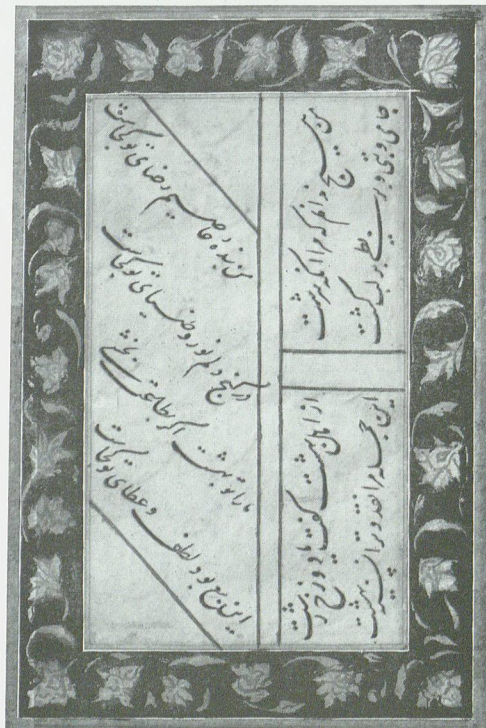 من هیچ ندانم که مرا آنکه سرشت
از اهل بهشت گفت یا دوزخ زشت
جامی و بتی و بربطی بر لب کشت
این جمله مرا نقد و ترا نسیه بهشت
من بنده عاصیم رضای تو کجاست
در کنج دلم نور و ضیای تو کجاست
ما را تو بهشت اگر بطاعت بخشی
این بیع بود لطف و عطای تو کجاست